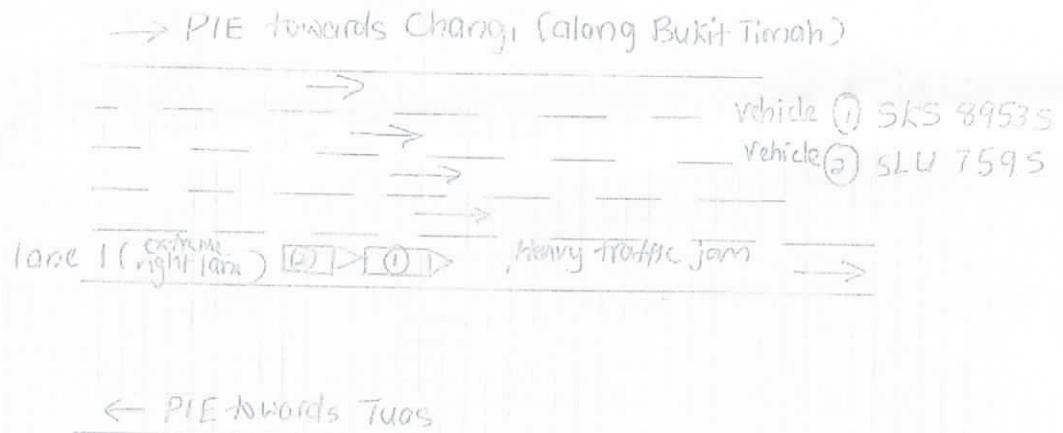 → PIE towards Changi (along Bukit Timah)
vehicle ① SKS 8953S
Vehicle ② SLU 759S
lane 1 (extreme right lane) ② ①
Heavy traffic jam
← PIE towards Tuas